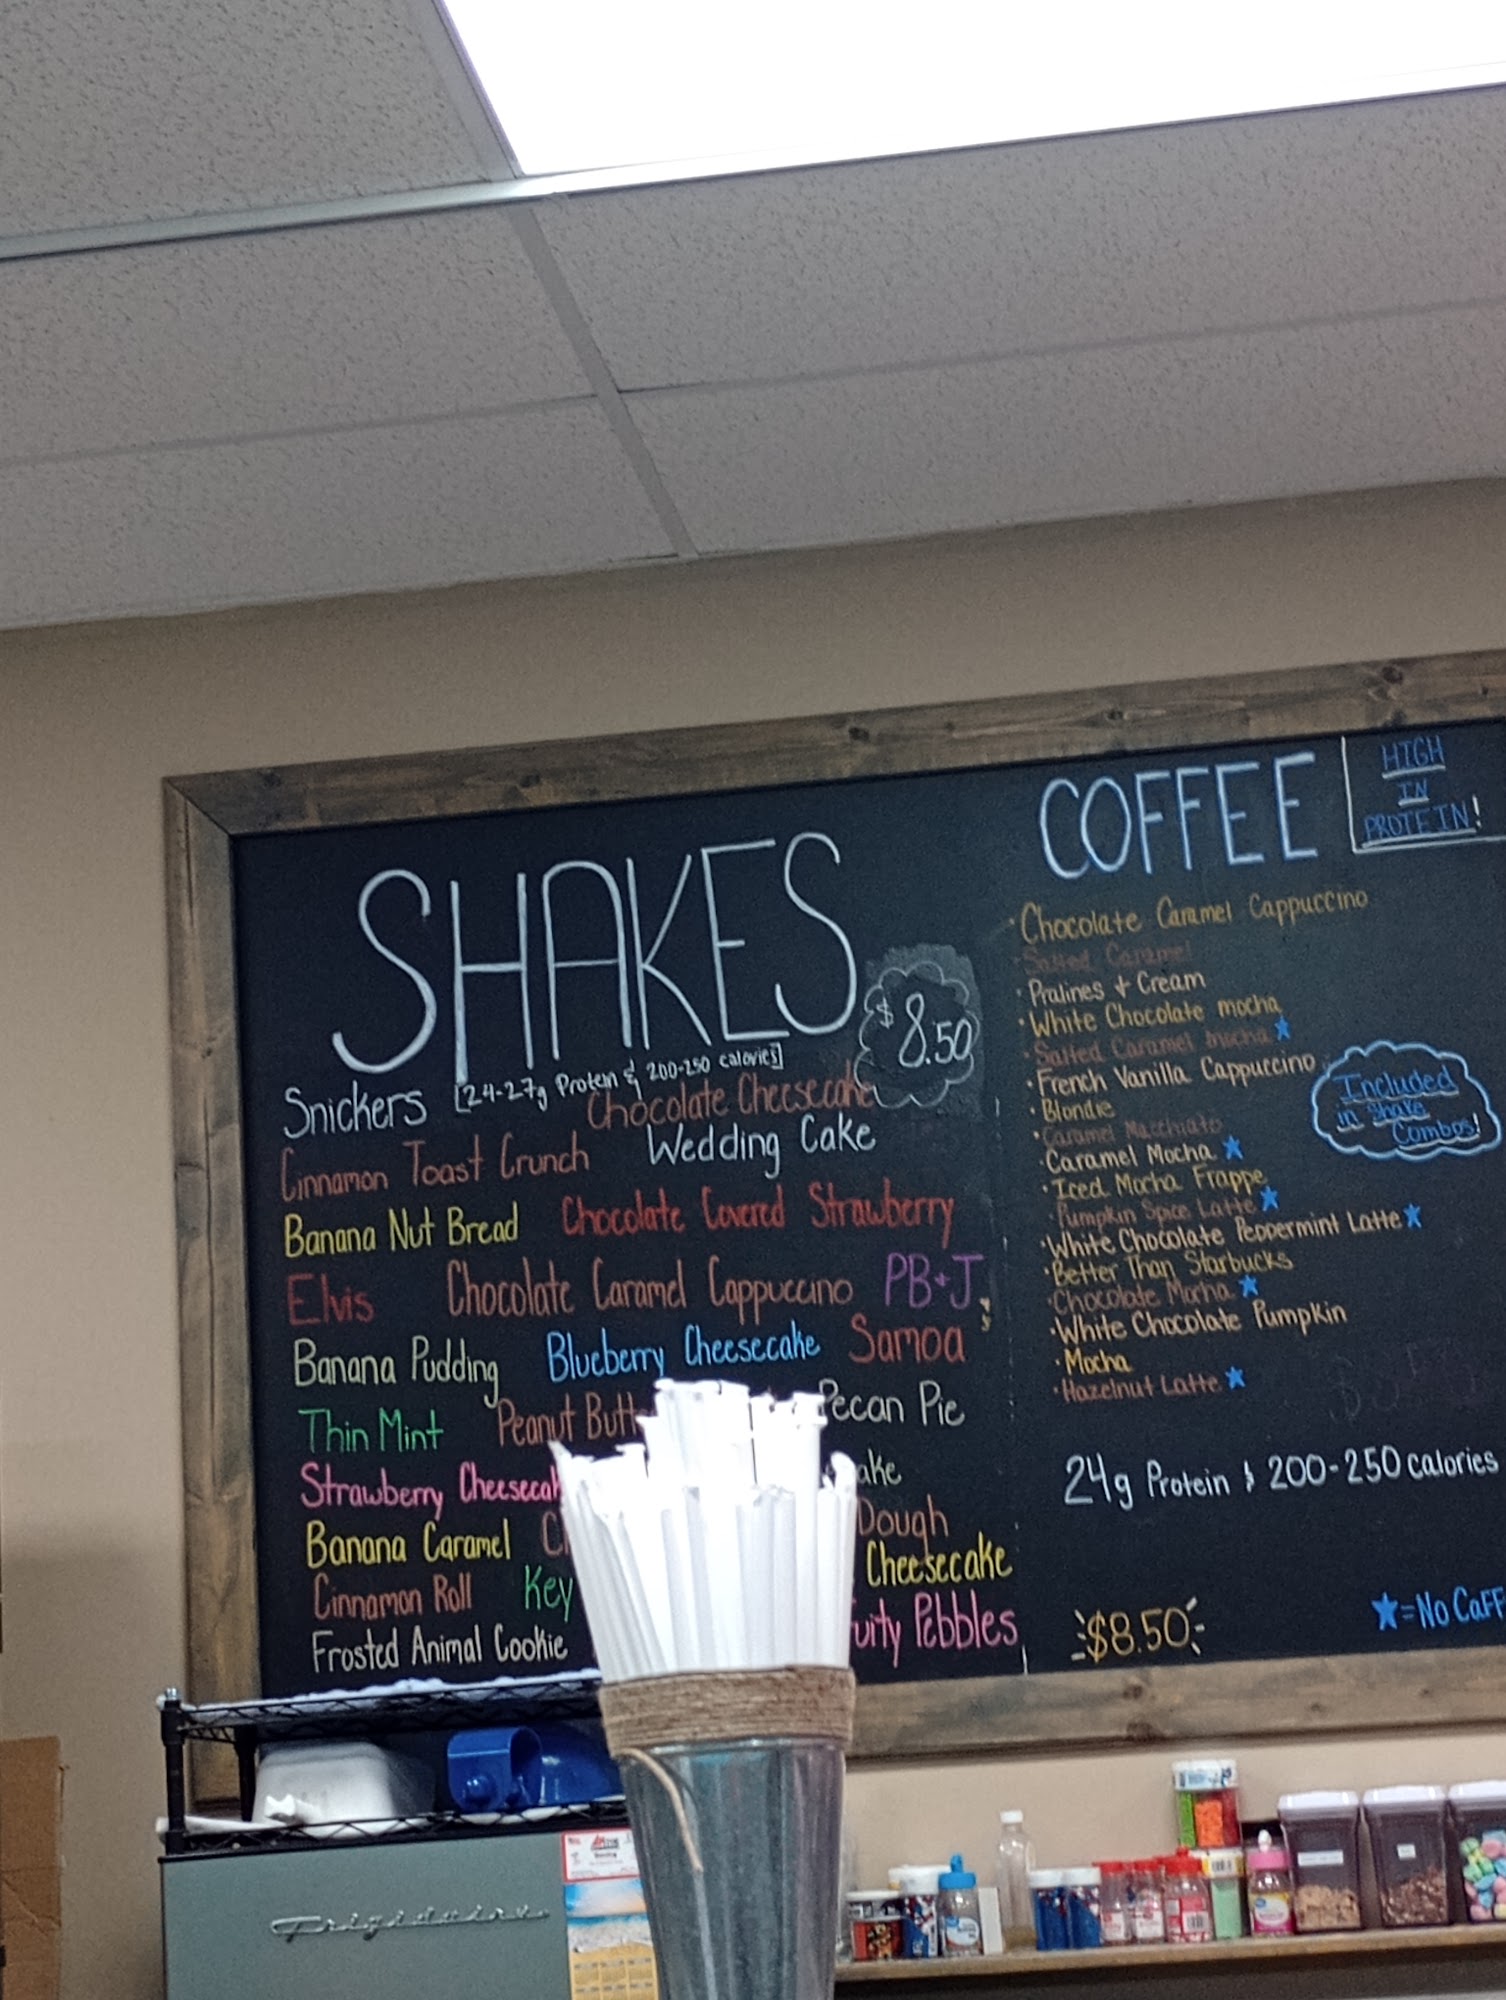 SHAKES
$8.50
[24-27g Protein & 200-250 calories]
Snickers Chocolate Cheesecake
Cinnamon Toast Crunch Wedding Cake
Banana Nut Bread Chocolate Covered Strawberry
Elvis Chocolate Caramel Cappuccino PB+J
Banana Pudding Blueberry Cheesecake Samoa
Thin Mint Peanut Pecan Pie
Strawberry
Banana Caramel Dough
Cinnamon Roll Key Cheesecake
Frosted Animal Cookie Pebbles
COFFEE
HIGH
IN
PROTEIN!
·Chocolate Caramel Cappuccino
·Salted Caramel
·Pralines + Cream
·White Chocolate mocha
·Salted Caramel mocha ★
·French Vanilla Cappuccino
·Blondie
·Caramel Macchiato
·Caramel Mocha ★
·Iced Mocha Frappe
·Pumpkin Spice Latte ★
·White Chocolate Peppermint Latte ★
·Better Than Starbucks
·Chocolate Mocha ★
·White Chocolate Pumpkin
·Mocha
·Hazelnut Latte ★
Included
in Shake
Combos!
24g Protein & 200-250 calories
$8.50
★=No
Frigidaire